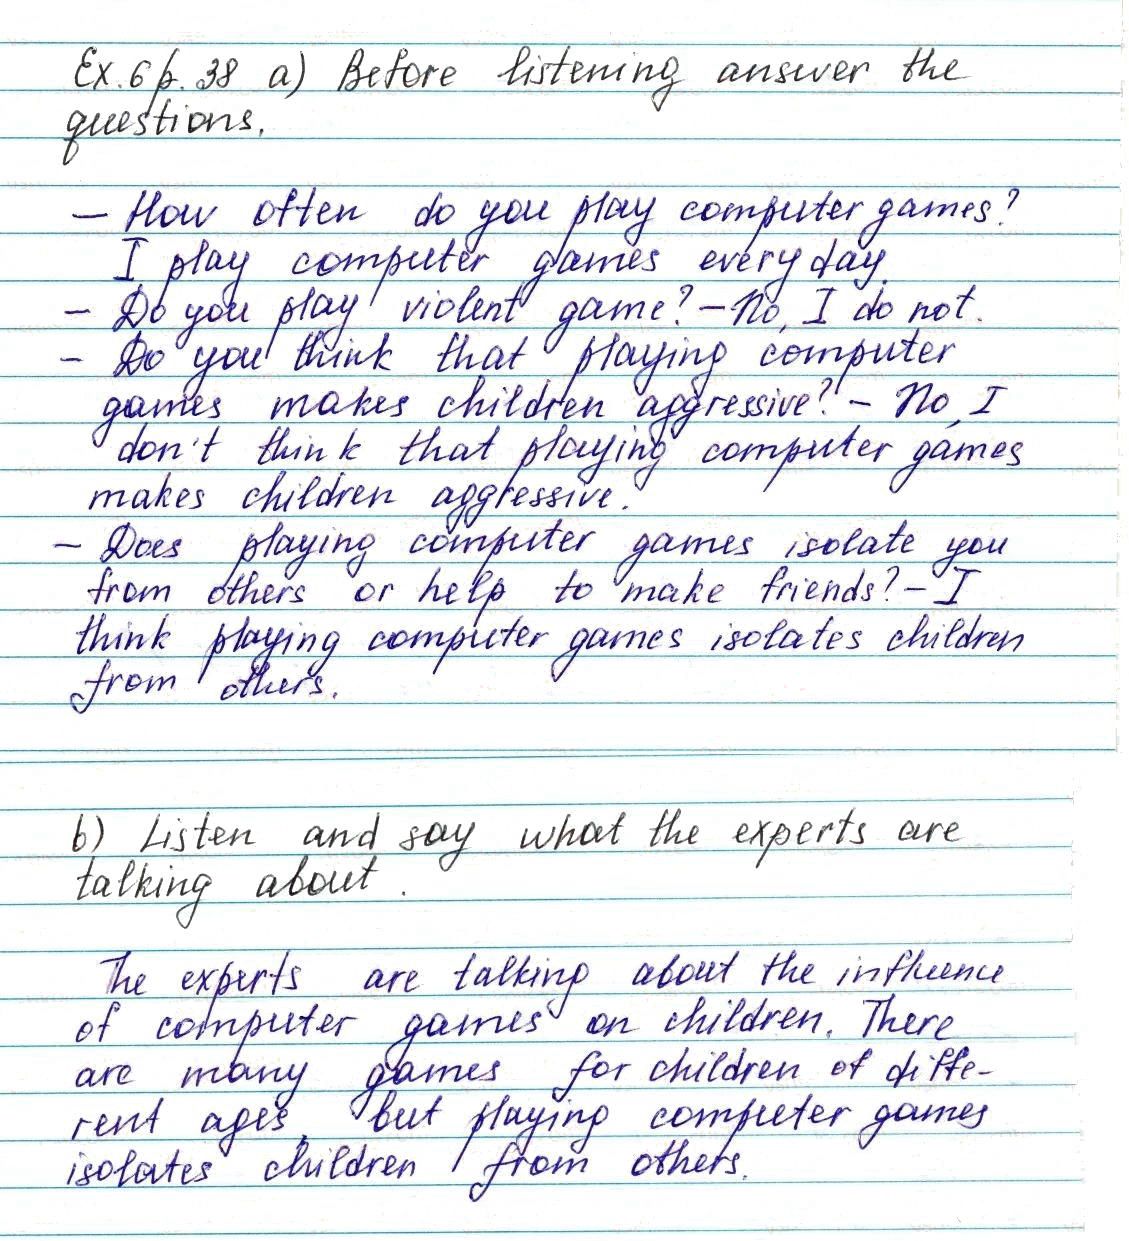 Ex. 6 p. 38 a) Before listening answer the
questions.
– How often do you play computer games?
I play computer games every day.
– Do you play violent game? – No, I do not.
– Do you think that playing computer
games makes children aggressive? – No, I
don't think that playing computer games
makes children aggressive.
– Does playing computer games isolate you
from others or help to make friends? – I
think playing computer games isolates children
from others.
b) Listen and say what the experts are
talking about.
The experts are talking about the influence
of computer games on children. There
are many games for children of diffe-
rent ages, but playing computer games
isolates children from others.